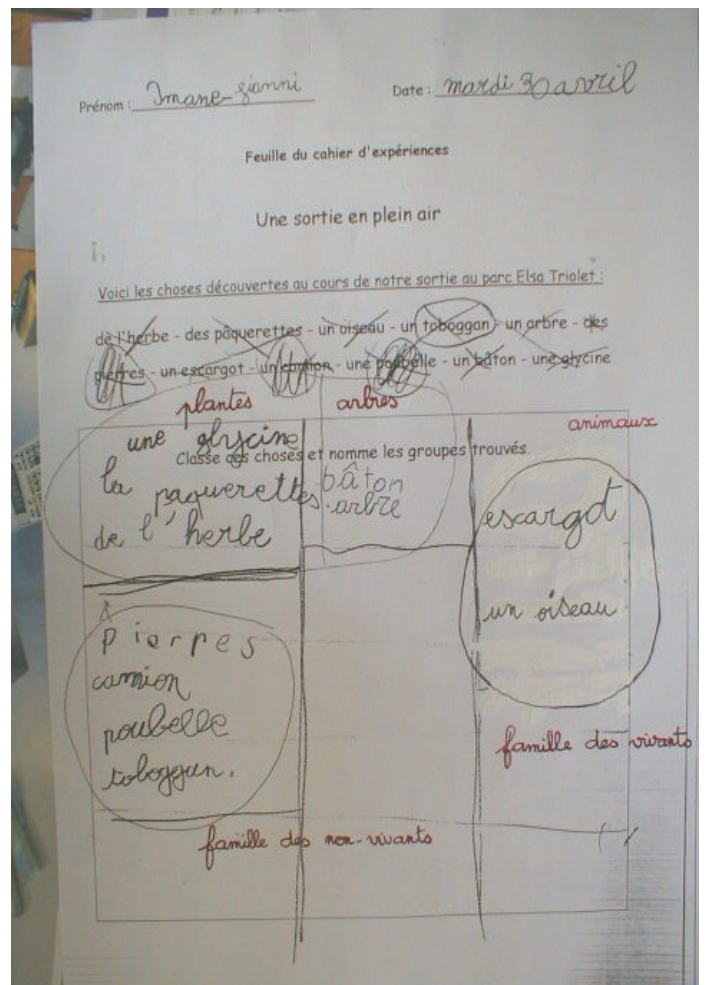 Prénom : Imane-gianni
Date : mardi 30 avril
Feuille du cahier d'expériences
Une sortie en plein air
Voici les choses découvertes au cours de notre sortie au parc Elsa Triolet :
de l'herbe - des pâquerettes - un oiseau - un toboggan - un arbre - des
pierres - un escargot - un camion - une poubelle - un bâton - une glycine
plantes
arbres
animaux
une glycine
Classe ces choses et nomme les groupes trouvés
la paquerettes
bâton
arbre
de l'herbe
escargot
un oiseau
pierres
camion
poubelle
toboggan.
famille des vivants
famille des non-vivants